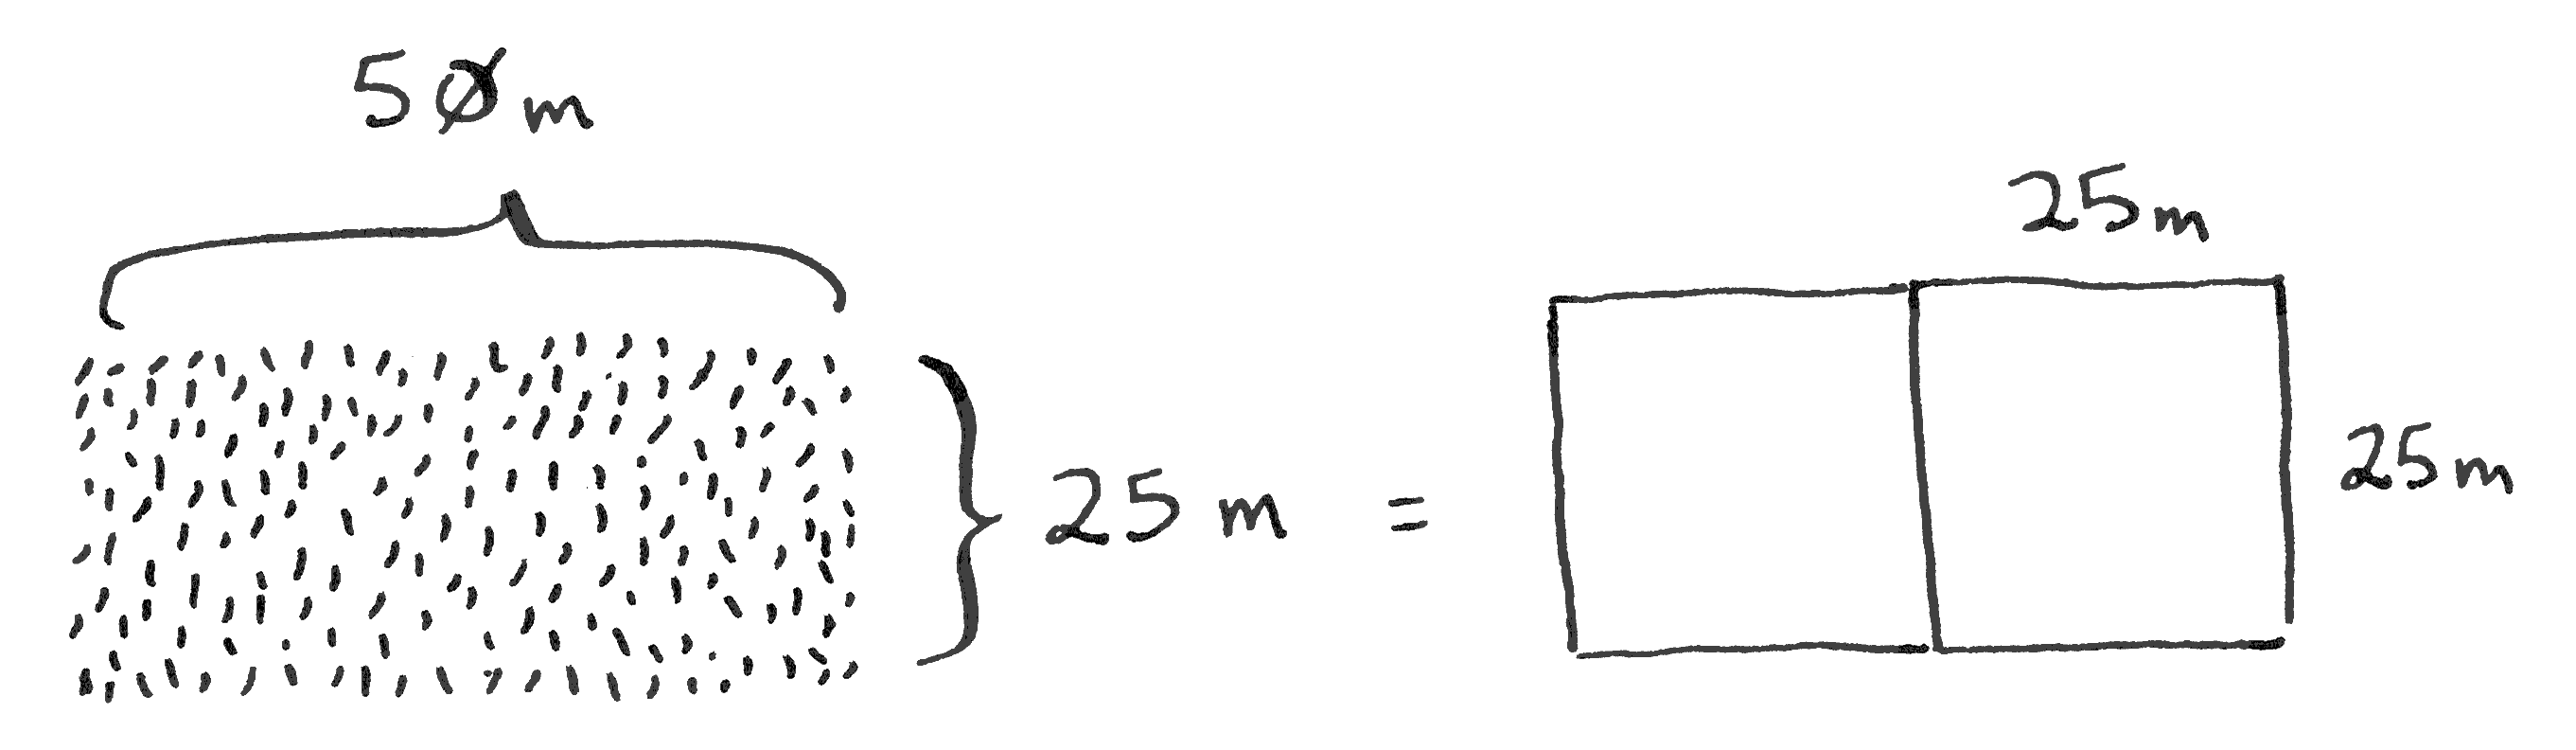 50m
25m
25m =
25m